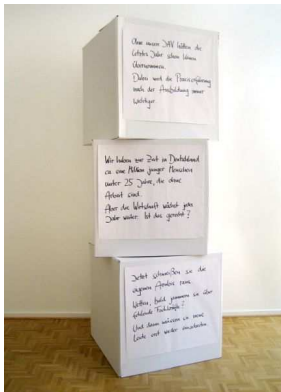 Ohne unsere JAV hätten die
letztes Jahr schon keinen
übernommen.
Dabei wird die Praxiserfahrung
nach der Ausbildung immer
wichtiger.
Wir haben zur Zeit in Deutschland
ca eine Million junger Menschen
unter 25 Jahre, die ohne
Arbeit sind.
Aber die Wirtschaft wächst jedes
Jahr weiter. Ist das gerecht?
Jetzt schmeißen sie die
eigenen Azubis raus.
Wetten, bald jammern sie über
fehlende Fachkräfte?
Und dann müssen sie neue
Leute erst wieder einarbeiten.